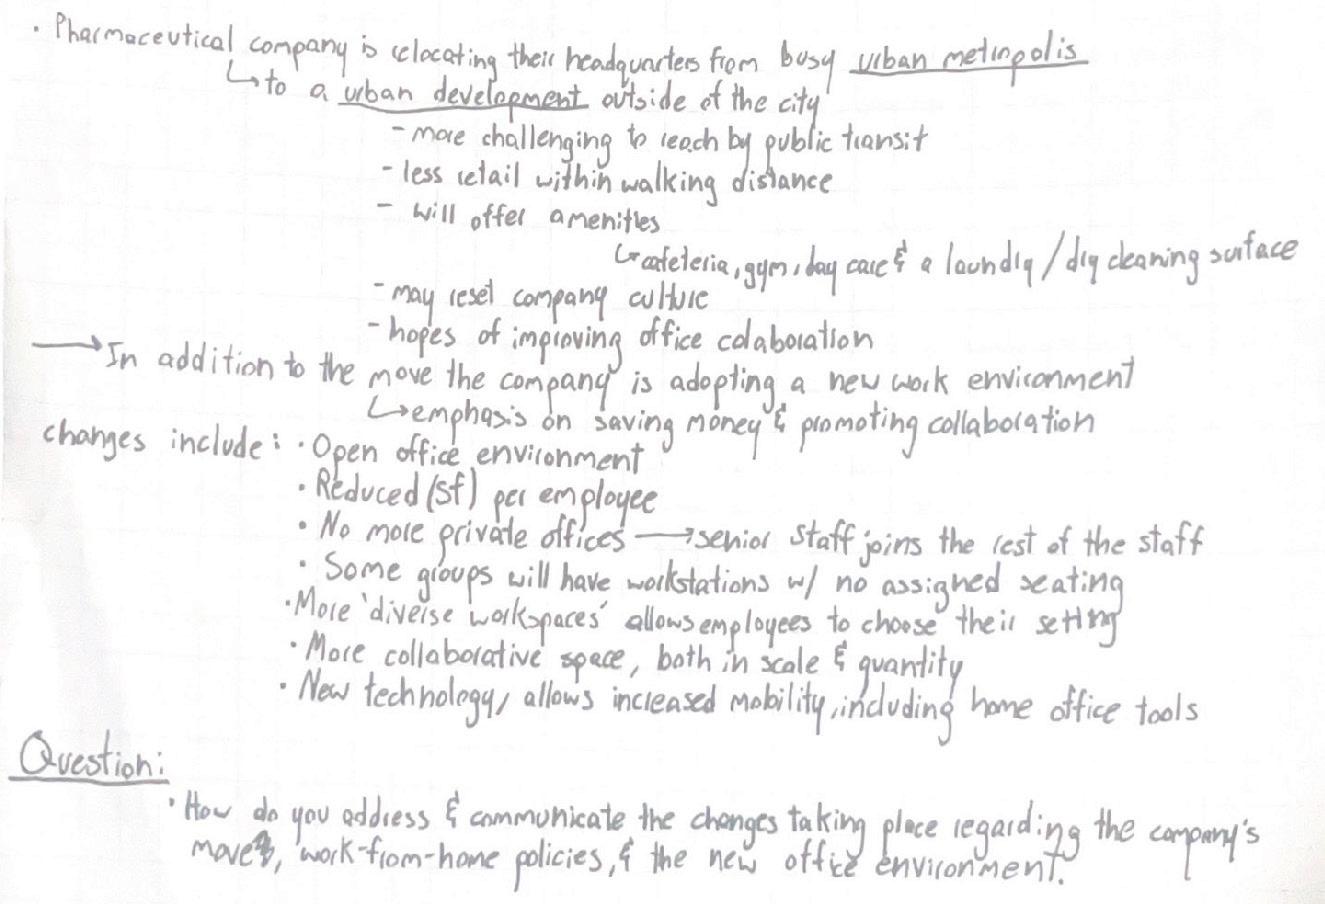 · Pharmaceutical company is relocating their headquarters from busy urban metropolis
↳ to a urban development outside of the city
- more challenging to reach by public transit
- less retail within walking distance
- will offer amenities
↳ cafeteria, gym, day care & a laundry / dry cleaning surface
- may reset company culture
- hopes of improving office colaboration
→ In addition to the move the company is adopting a new work environment
↳ emphasis on saving money & promoting collaboration
changes include: · Open office environment
· Reduced (sf) per employee
· No more private offices → senior staff joins the rest of the staff
· Some groups will have workstations w/ no assigned seating
· More 'diverse workspaces' allows employees to choose their setting
· More collaborative space, both in scale & quantity
· New technology, allows increased mobility, including home office tools
Question:
· How do you address & communicate the changes taking place regarding the company's
move, work-from-home policies, & the new office environment.